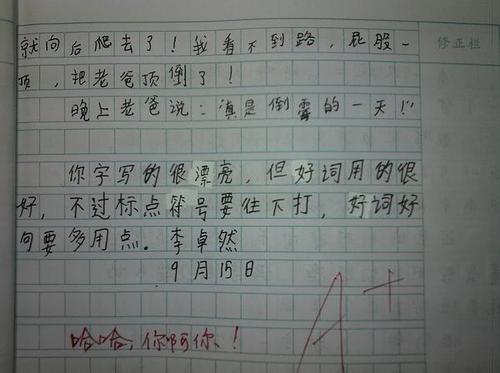 就向后爬去了！我看不到路，屁股一
顶，把老爸顶倒了！
晚上老爸说：“真是倒霉的一天！”
你字写的很漂亮，但好词用的很
好，不过标点符号要往下打，好词好
句要多用点。李卓然
9月15日
哈哈，你啊你！
A+
修正栏